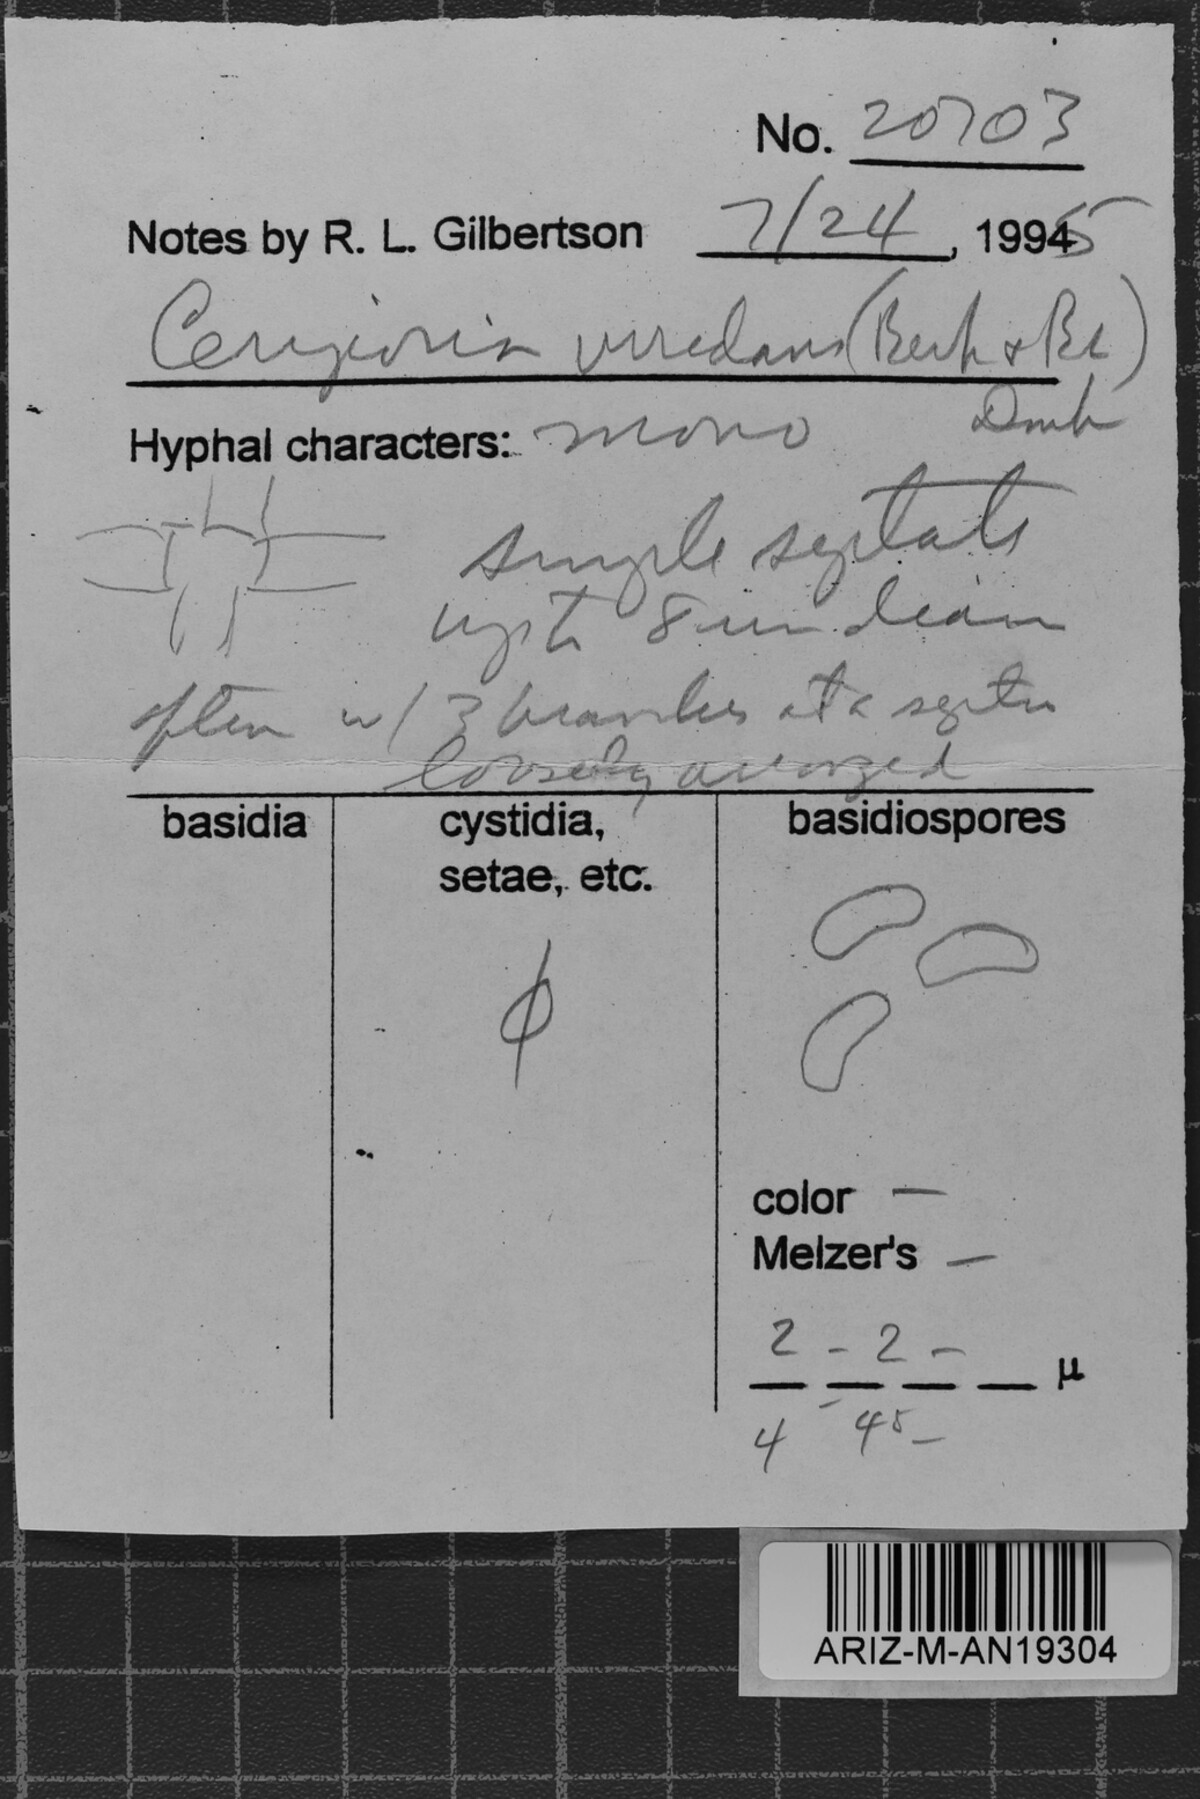 No. 20703
Notes by R. L. Gilbertson 7/24, 1995
Ceriporia viridans (Berk & Br)
Donk
Hyphal characters: mono
simple septate
up to 8 um diam
often w/ 3 branches at a septum
loosely arranged
basidia cystidia, basidiospores
setae, etc.
φ
color —
Melzer's —
2 - 2 - µ
4 - 45 -
ARIZ-M-AN19304